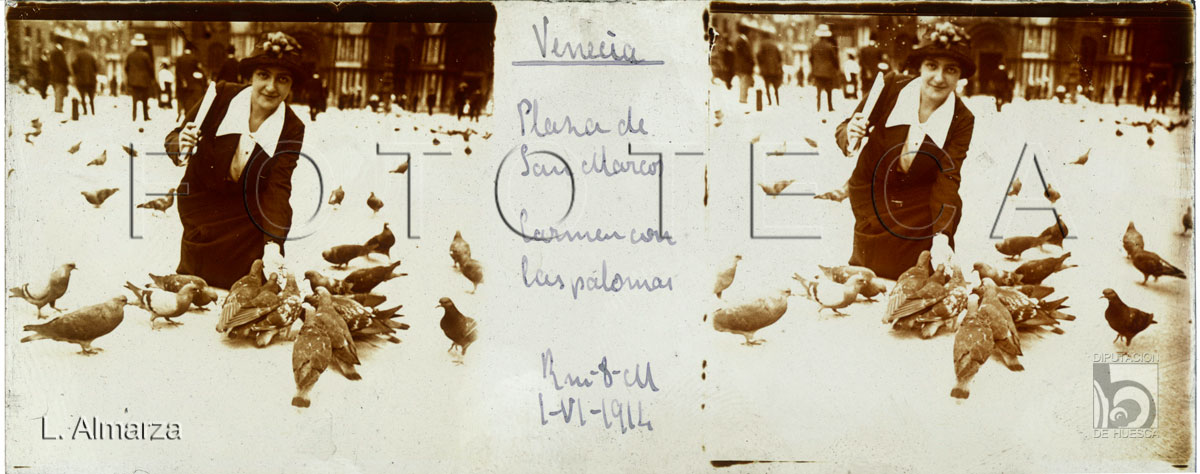 Venecia
Plaza de
San Marcos
Carmen con
las palomas
1-VI-1914
FOTOTECA
L. Almarza
DIPUTACIÓN
DE HUESCA